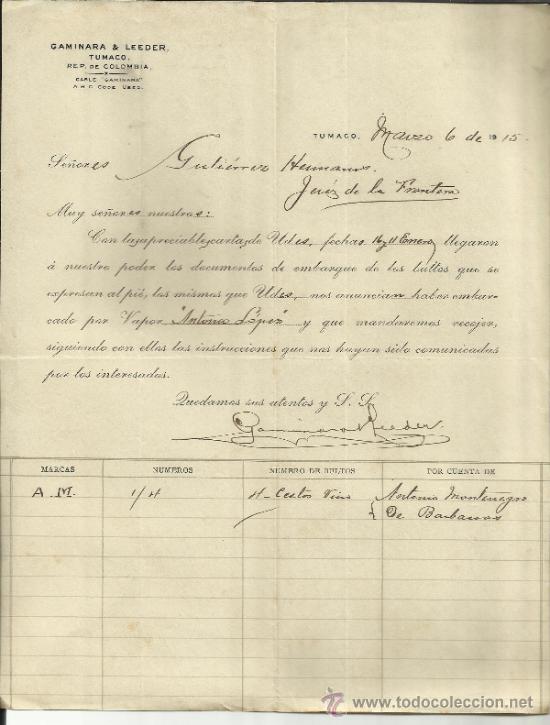 GAMINARA & LEEDER,
TUMACO,
REP. DE COLOMBIA,
CABLE "GAMINARA"
A B C CODE USED.
TUMACO, Marzo 6 de 1915.
Señores Gutiérrez Hermanos.
Jeréz de la Frontera
Muy señores nuestros:
Con la apreciable carta de Udes, fechas y 11 Enero llegaron
á nuestro poder los documentos de embarque de los bultos que se
expresan al pié, los mismos que Udes, nos anuncian haber embar-
cado por Vapor "Antonio López" y que mandaremos recojer,
siguiendo con ellos las instrucciones que nos hayan sido comunicadas
por los interesados.
Quedamos sus atentos y S. S.
Gaminara Leeder.
MARCAS NUMEROS NUMERO DE BULTOS POR CUENTA DE
A. M. 1/4 4 - Cestos Vino Antonio Montenegro
De Barbacoas
todocoleccion
www.todocoleccion.net